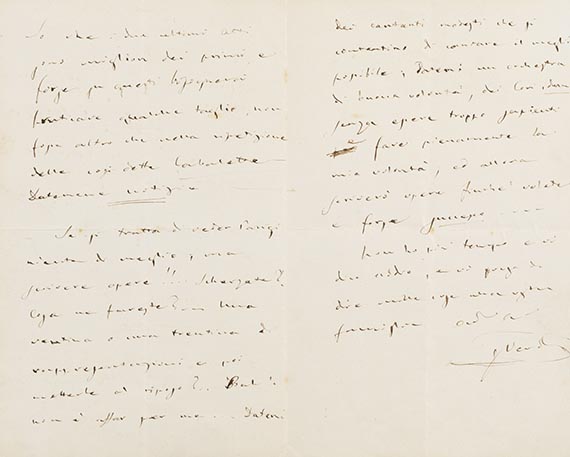 So che i due ultimi atti
sono migliori dei primi, e
forse in questi bisognerà
praticare qualche taglio, non
fosse altro che nella ripetizione
delle così dette Cabalette
Datemene notizie
Se si tratta di veder l'anzi
di meglio; ma
scrivere opere!!! Scherzate?
Cosa ne fareste? Una
ventina o una trentina di
rappresentazioni e poi
metterle al riposo?.. Bah!
non è affar per me... Datemi
dei cantanti modesti che si
contentino di cantare il meglio
possibile; Datemi un'orchestra
di buona volontà, dei Cori idem
senza essere troppo sapienti
e fare pienamente la
mia volontà, ed allora
scriverò opere finché volete
e forse
Non ho più tempo e vi
dico addio, e vi prego di
dire molte cose alla vostra
famiglia addio
G Verdi